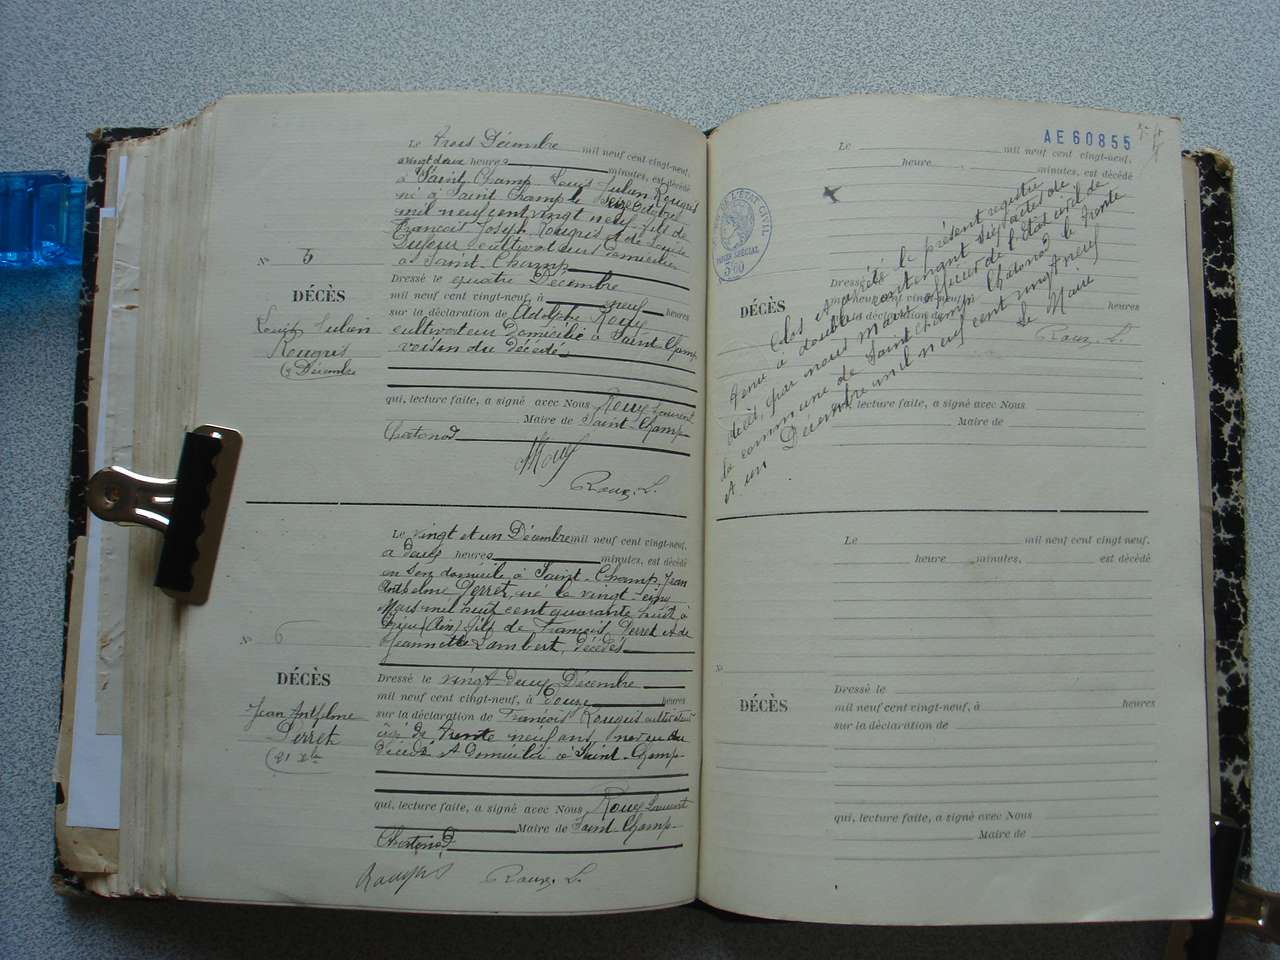 Le trois Décembre mil neuf cent vingt-neuf,
à vingt deux heures minutes, est décédé
à Saint-Champ Louis Julien Rougris
né à Saint Champ le seize Octobre
mil neuf cent vingt neuf, fils de
François Joseph Rougris et de
Dufour cultivateurs domiciliés
à Saint-Champ
N° 5
DÉCÈS
Louis Julien
Rougris
3 Décembre
Dressé le quatre Décembre
mil neuf cent vingt-neuf, à neuf heures
sur la déclaration de Adolphe Roux
cultivateur domicilié à Saint-Champ
voisin du décédé
qui, lecture faite, a signé avec Nous Roux Laurent
Maire de Saint-Champ
Chatonod
Roux
Roux. L.
Le vingt et un Décembre mil neuf cent vingt-neuf,
à douze heures minutes, est décédé
en son domicile à Saint-Champ, Jean
Anthelme Perret, né le vingt-cinq
Mars mil huit cent quarante huit à
(Ain) fils de François Perret et de
Jeannette Lambert, décédés
N° 6
DÉCÈS
Jean Anthelme
Perret
(21 Xbre
Dressé le vingt deux Décembre
mil neuf cent vingt-neuf, à douze heures
sur la déclaration de François Rougris cultivateur
âgé de trente neuf ans, neveu du
décédé et domicilié à Saint-Champ
qui, lecture faite, a signé avec Nous Roux Laurent
Maire de Saint-Champ
Chatonod
Rougris
Roux. L.
AE 60855
Le mil neuf cent vingt-neuf,
heure minutes, est décédé
DE L'ÉTAT CIVIL
PAPIER SPÉCIAL
Clos et arrêté le présent registre
tenu à double contenant six actes de
décès, par nous maire officier de l'Etat civil de
la commune de Saint Champ Chatonod le trente
et un Décembre mil neuf cent vingt neuf
Le Maire
Roux. L.
Dressé
DÉCÈS
mil neuf cent vingt-neuf heures
sur la déclaration de
qui, lecture faite, a signé avec Nous
Maire de
Le mil neuf cent vingt neuf,
heure minutes, est décédé
N°
DÉCÈS
Dressé le
mil neuf cent vingt-neuf, à heures
sur la déclaration de
qui, lecture faite, a signé avec Nous
Maire de